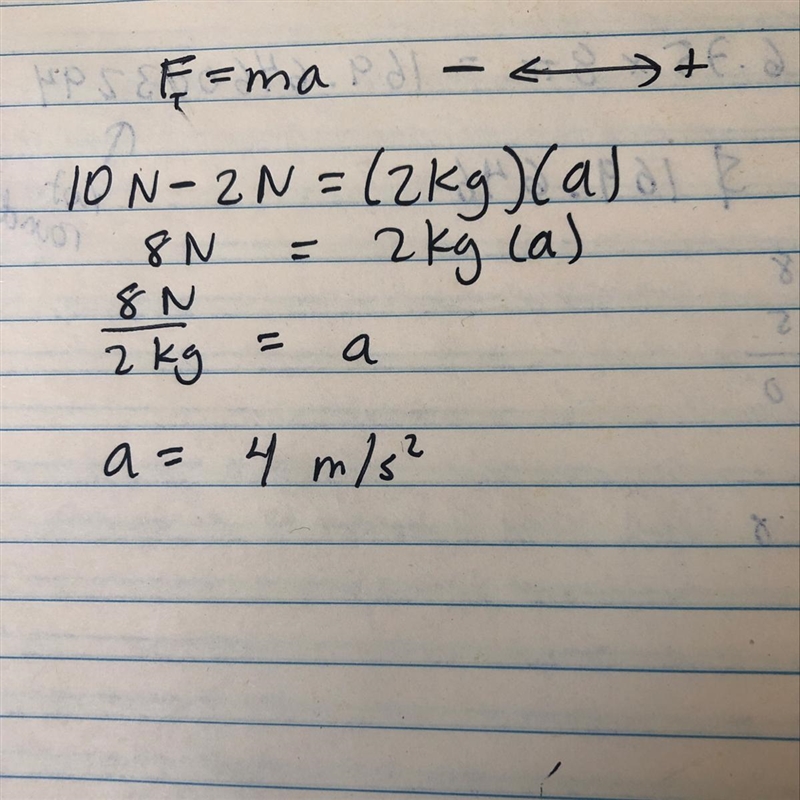 F_T = ma   − ⟷ +
10N − 2N = (2kg)(a)
8N = 2kg (a)
8N / 2kg = a
a = 4 m/s²